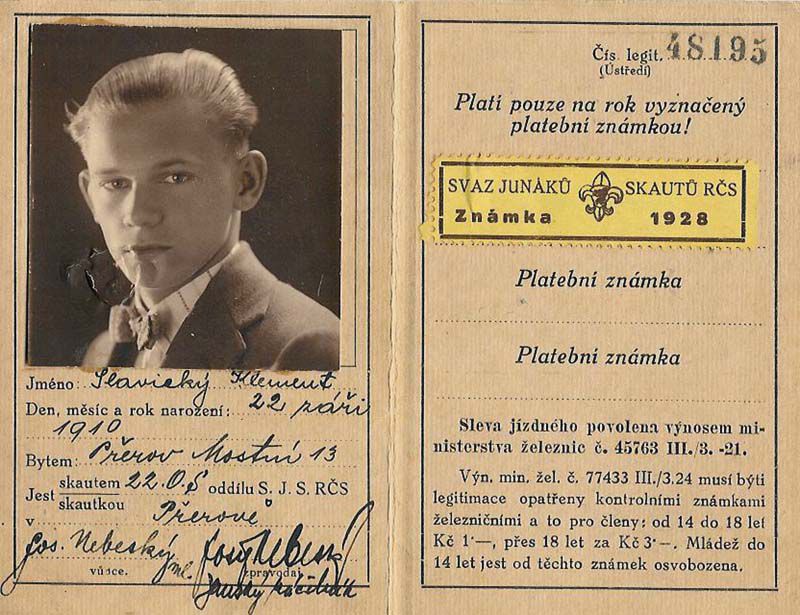 Jméno: Slavický Klement
Den, měsíc a rok narození: 22 září
1910
Bytem: Přerov Mostní 13
Jest skautem 22.O.S oddílu S. J. S. RČS
skautkou
v Přerově
Jos. Nebeský ml.
vůdce. zpravodaj
Čís. legit. 48195
(Ústředí)
Platí pouze na rok vyznačený
platební známkou!
SVAZ JUNÁKŮ SKAUTŮ RČS
Známka 1928
Platební známka
Platební známka
Sleva jízdného povolena výnosem mi-
nisterstva železnic č. 45763 III./3. -21.
Výn. min. žel. č. 77433 III./3.24 musí býti
legitimace opatřeny kontrolními známkami
železničními a to pro členy: od 14 do 18 let
Kč 1·—, přes 18 let za Kč 3·—. Mládež do
14 let jest od těchto známek osvobozena.